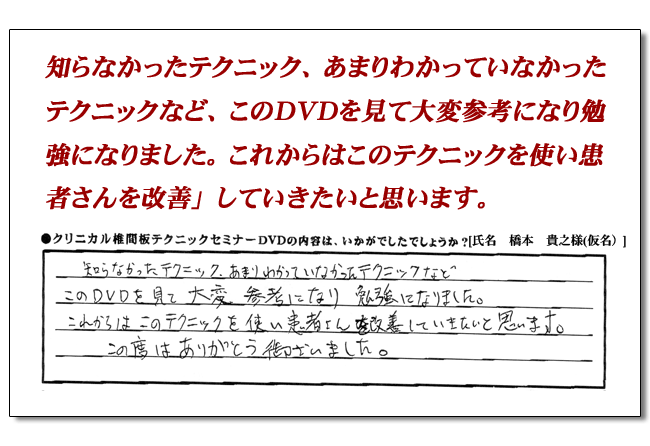 知らなかったテクニック、あまりわかっていなかった
テクニックなど、このDVDを見て大変参考になり勉
強になりました。これからはこのテクニックを使い患
者さんを改善」していきたいと思います。
●クリニカル椎間板テクニックセミナーDVDの内容は、いかがでしたでしょうか?[氏名 橋本 貴之様(仮名)]
知らなかったテクニック、あまりわかっていなかったテクニックなど
このDVDを見て大変参考になり勉強になりました。
これからはこのテクニックを使い患者さんを改善していきたいと思います。
この度はありがとう御ざいました。